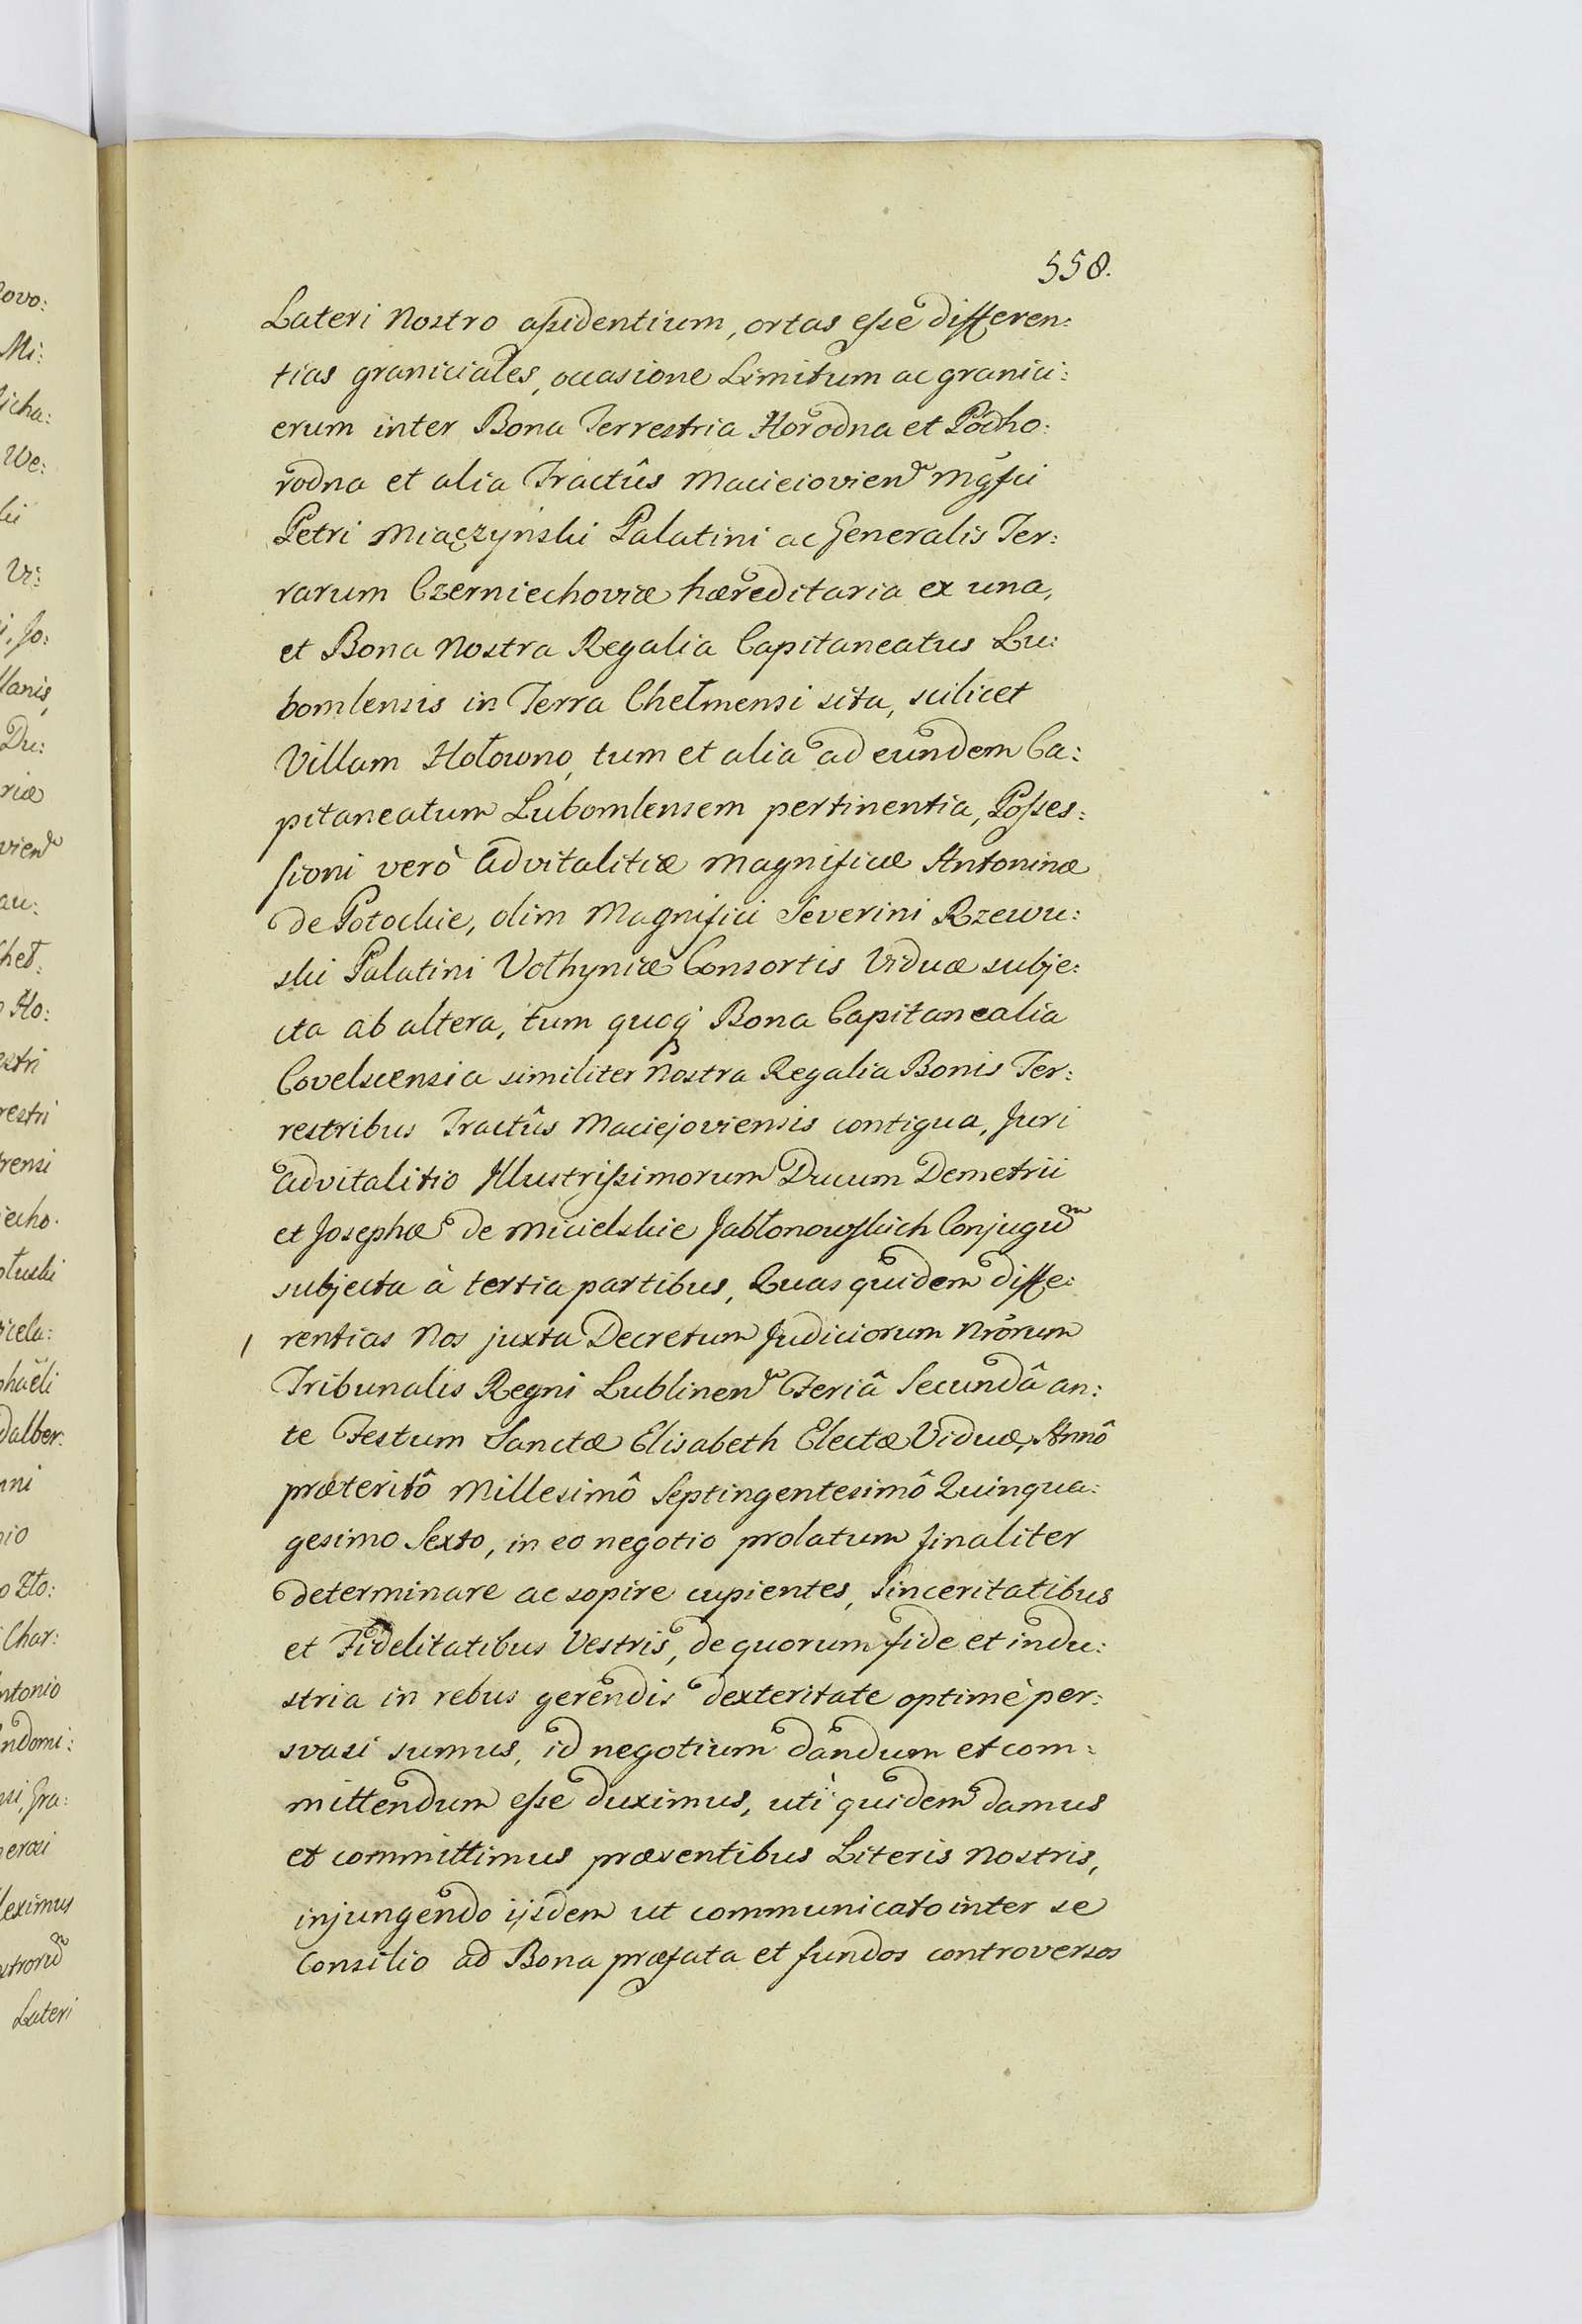 558.
Lateri Nostro aſsidentium, ortas eſse differen:
tias graniciales, occasione Limitum ac granici:
erum inter Bona Terrestria Horodna et Podho:
rodna et alia Tractûs Macieiovien̄ Mg̃fici
Petri Miączyński Palatini ac Generalis Ter:
rarum Czerniechoviæ hæreditaria ex una,
et Bona Nostra Regalia Capitaneatus Lu:
bomlensis in Terra Chełmensi sita, scilicet
Villam Hołowno, tum et alia ad eundem Ca:
pitaneatum Lubomlensem pertinentia, Poſses:
ſioni verò Advitalitiæ Magnificæ Antoninæ
de Potockie, olim Magnifici Severini Rzewu:
ski Palatini Vołhyniæ Consortis Viduæ subje:
cta ab altera, tum quoq́ Bona Capitanealia
Covelscensia similiter Nostra Regalia Bonis Ter:
restribus Tractûs Maciejoviensis contigua, Juri
Advitalitio Illustriſsimorum Ducum Demetrii
et Josephæ de Micielskie Jabłonowſkich Conjugu͠m
subjecta à tertia partibus, Quas quidem diffe:
rentias Nos juxta Decretum Judiciorum Nr̃orum
Tribunalis Regni Lublinen̄ Feriâ Secundâ an:
te Festum Sanctæ Elisabeth Electæ Viduæ, Annô
præteritô Millesimô Septingentesimô Quinqua:
gesimo Sexto, in eo negotio prolatum finaliter
determinare ac sopire cupientes, Sinceritatibus
et Fidelitatibus Vestris, de quorum fide et indu:
stria in rebus gerendis dexteritate optimè per:
svasi sumus, id negotium dandum et com:
mittendum eſse duximus, utì quidem damus
et committimus præsentibus Literis Nostris,
injungendo ijsdem ut communicato inter se
Consilio ad Bona præfata et fundos controversos